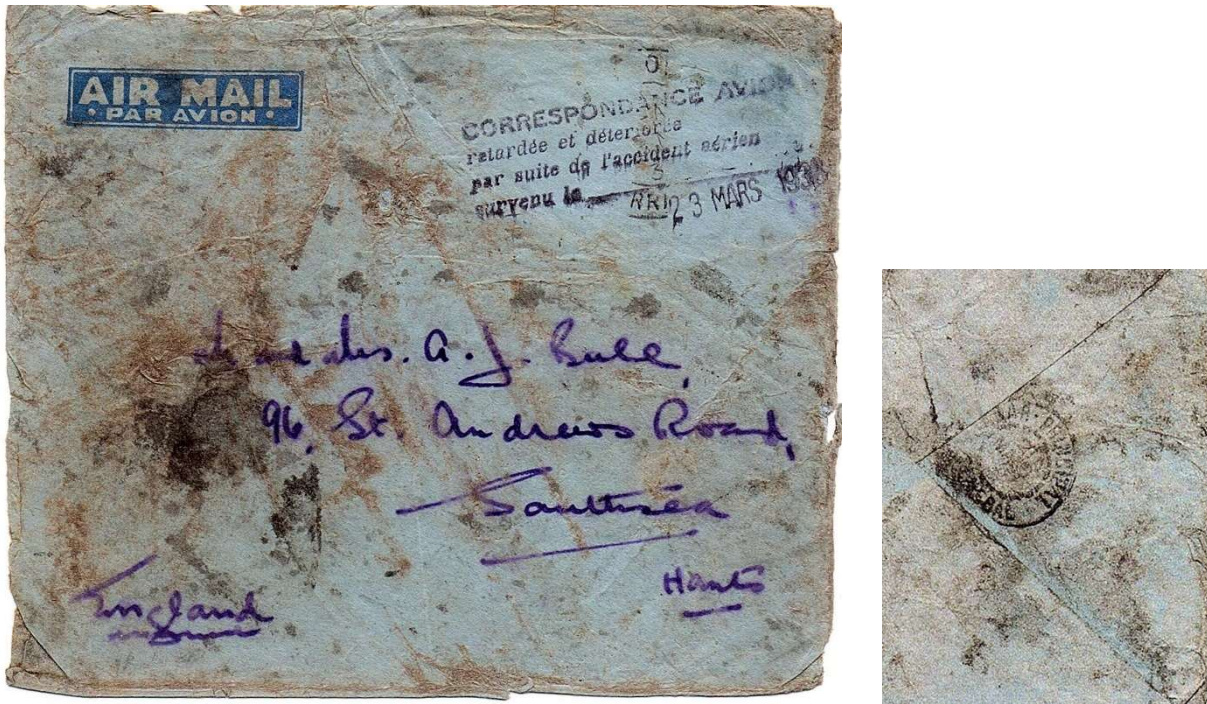 AIR MAIL
• PAR AVION •
O
CORRESPONDANCE AVION
retardée et déteriorée
par suite de l'accident aérien
survenu le
23 MARS
and Mrs. A. J. Bull,
96, St. Andrews Road,
Southsea
Hants
England